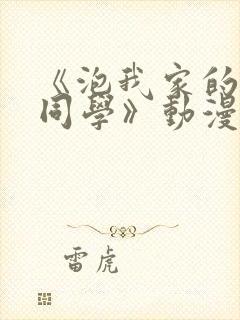 《泡我家的
同學》動漫
雷虎